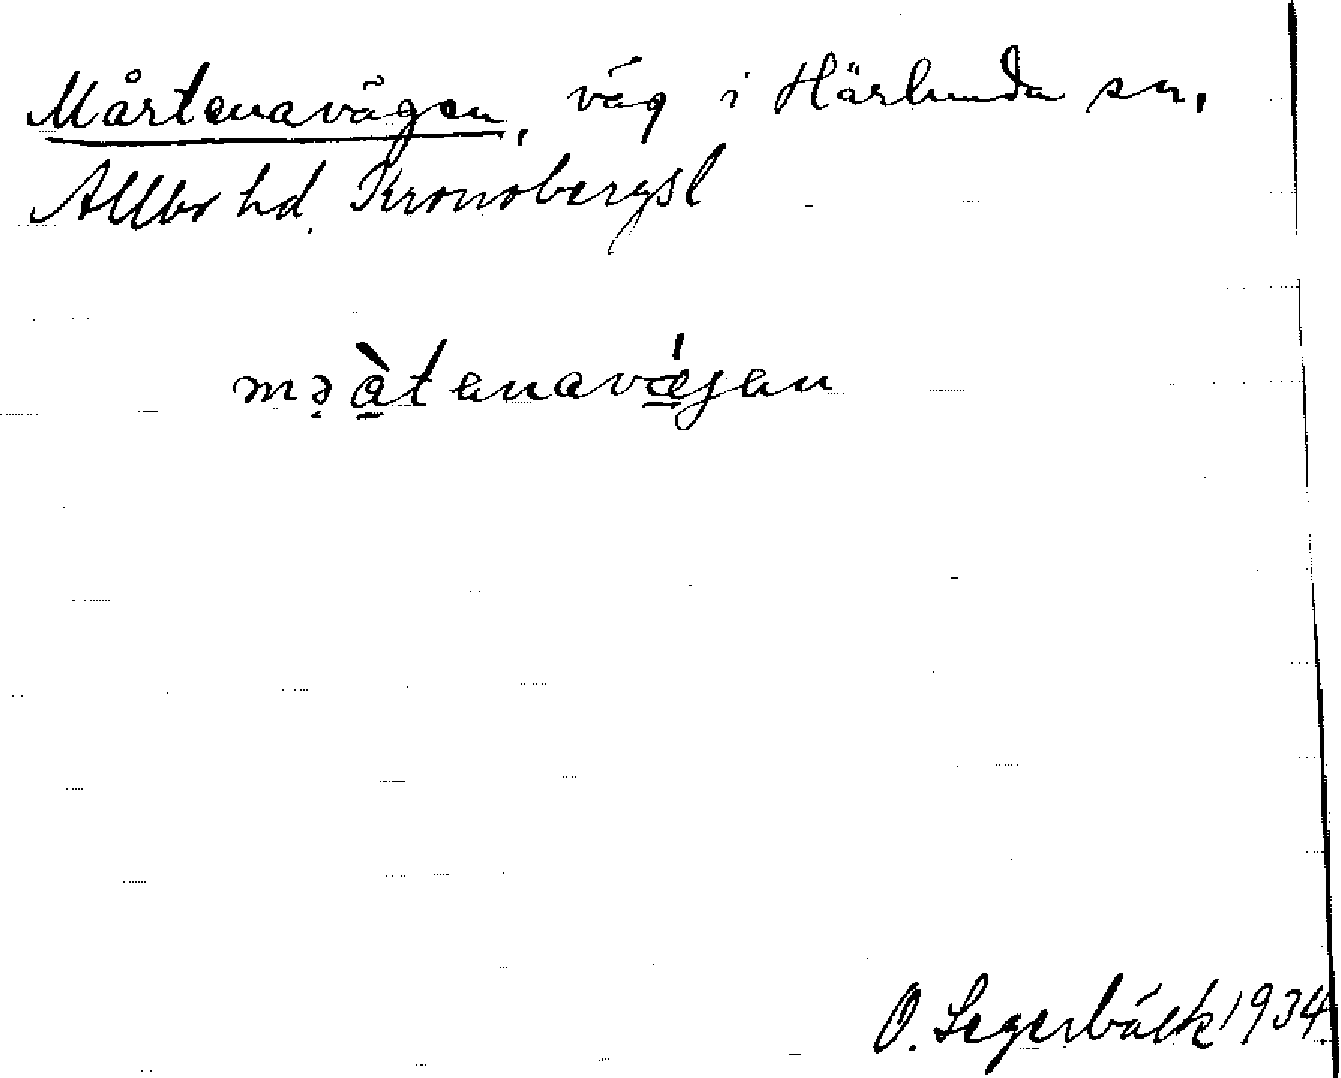 Mårtenavägen, väg i Härlunda sn,
Allbo hd. Kronobergsl
mə̣à̱tenavǽ̱jen
O. Segerbäck 1934